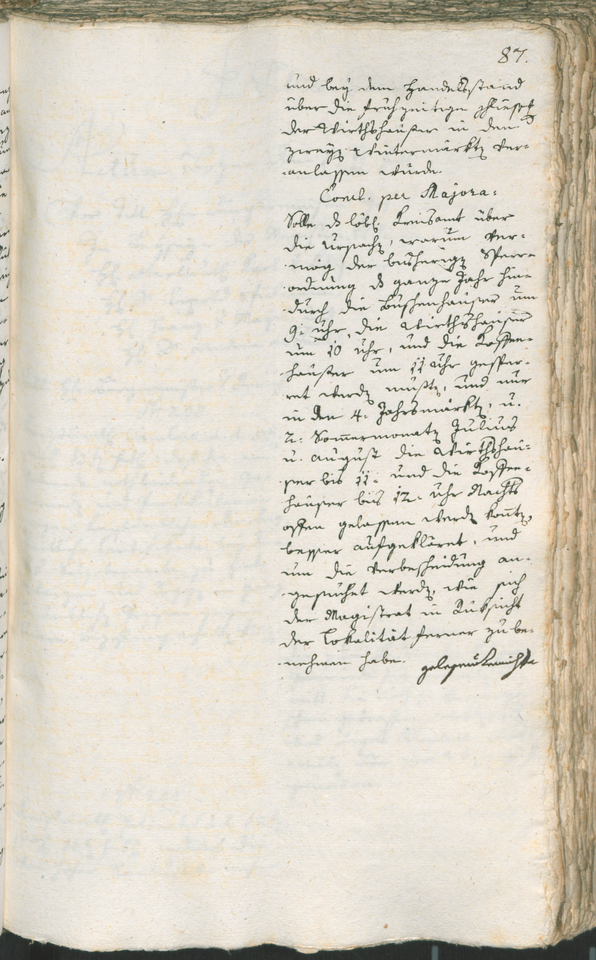 87.
und bey dem Handelsstand
über die frühzeitige Schliessg
der Wirthshäuser in den
zwey Wintermärkte ver-
anlassen würde.
Concl. per Majora:
Solle ds löbl. Kreisamt über
die Ursache, warum ver-
mög der bisherige Sperr-
ordnung ds ganze Jahr hin-
durch die Buschenhäuser um
9. Uhr, die Wirthshäuser
um 10 Uhr, und die Koffee-
häuser um 11 Uhr gesper-
ret werde müste, und nur
in den 4. Jahrsmärkte, u.
2. Sommermonate Julius
u. August die Wirthshäu-
ser bis 11. und die Koffee-
häuser bis 12. Uhr Nachts
offen gelassen werde könte,
besser aufgekläret, und
um die Verbescheidung an-
gesuchet werde, wie sich
der Magistrat in Rüksicht
der Lokalität ferner zu be-
nehmen habe.